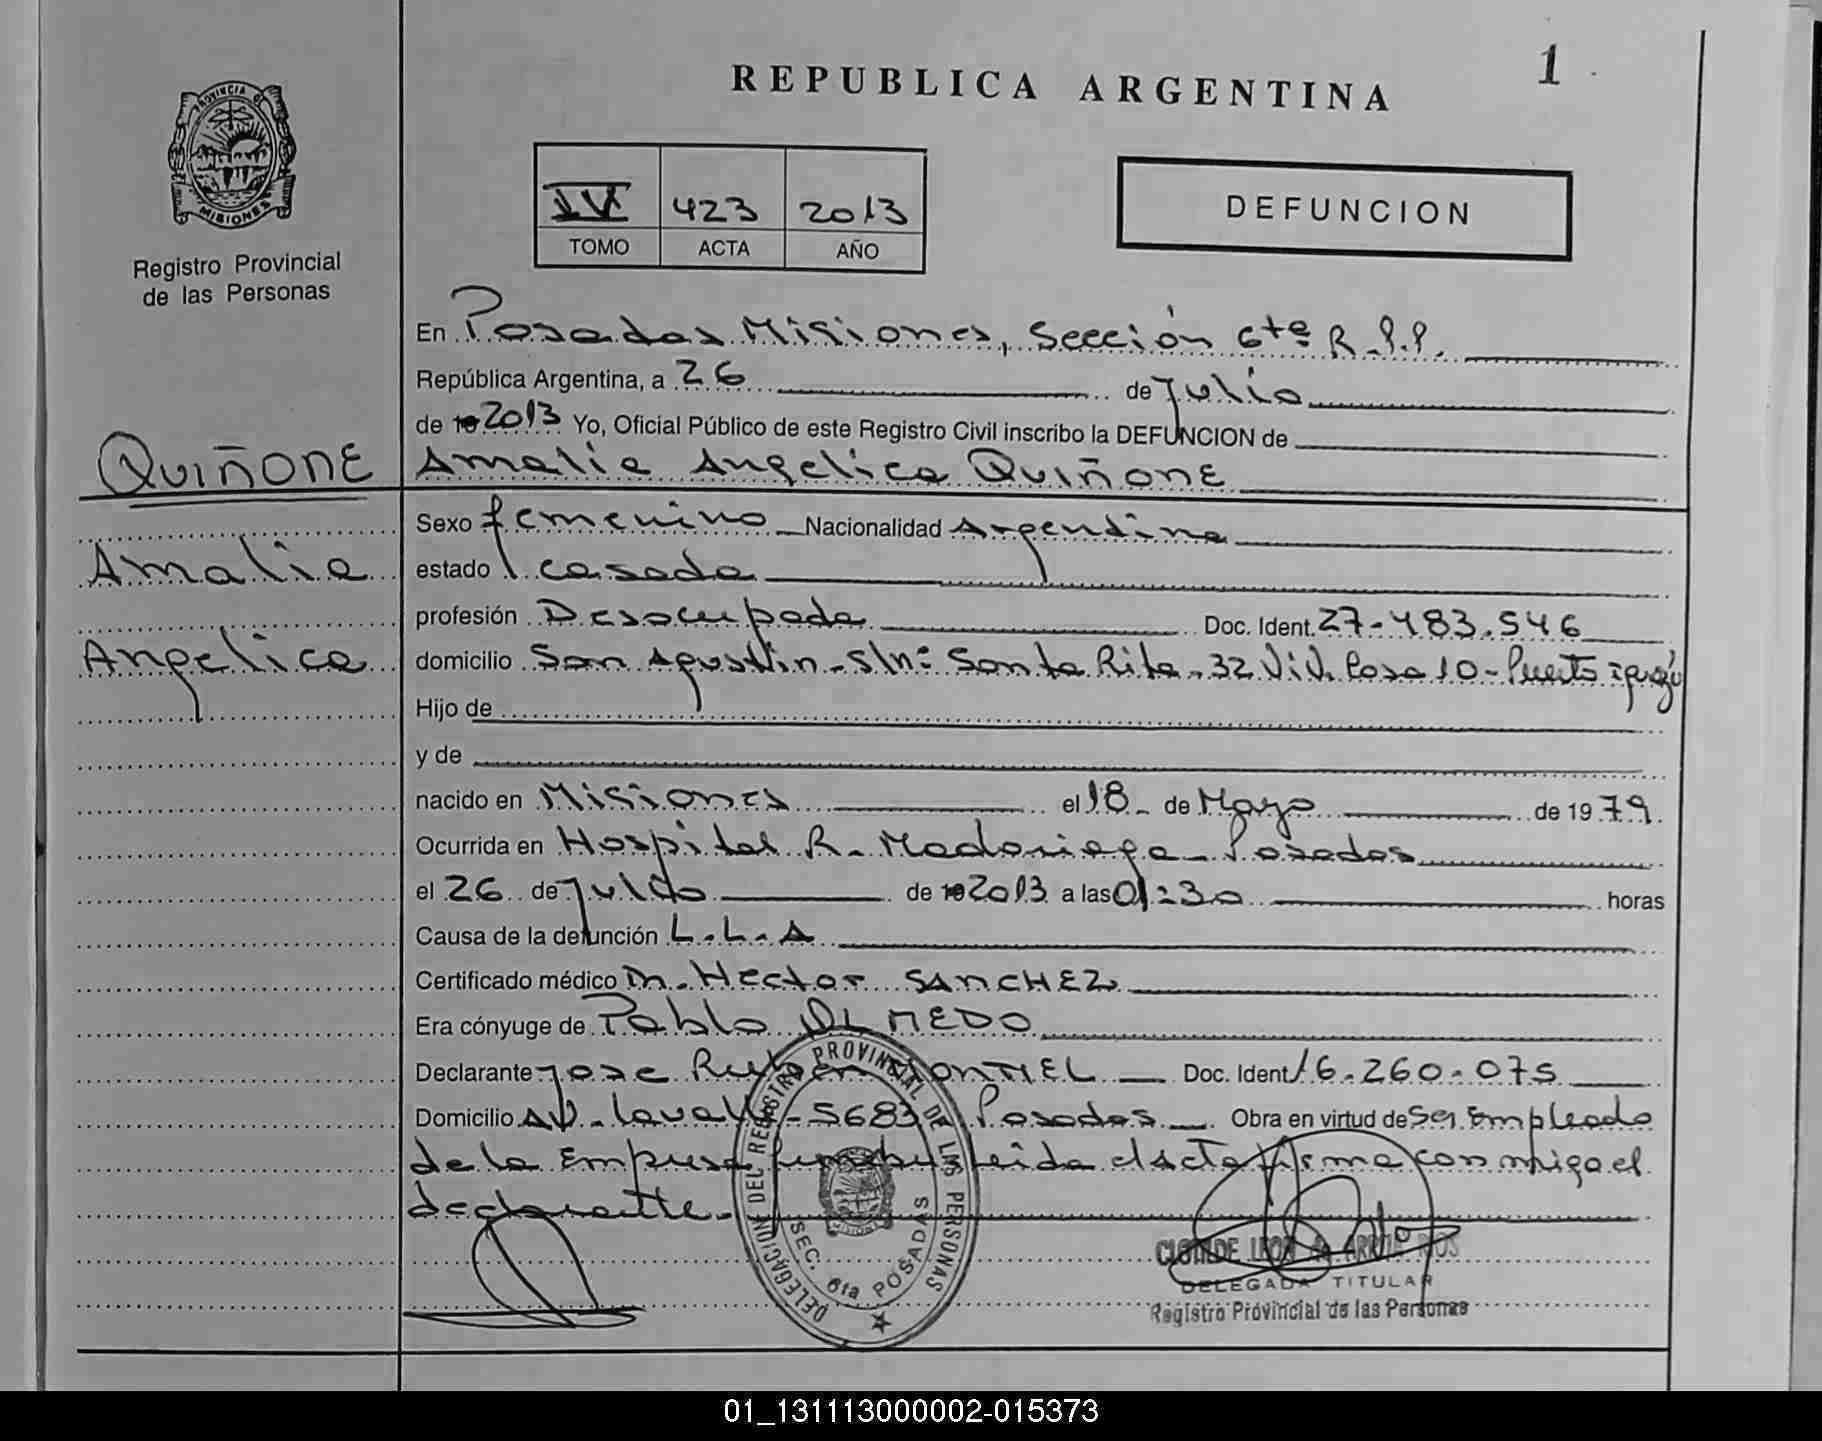 1
REPUBLICA ARGENTINA
PROVINCIA DE
MISIONES
Registro Provincial
de las Personas
IV 423 2013
TOMO ACTA AÑO
DEFUNCION
En Posadas Misiones, Sección 6ta R.P.P.
República Argentina, a 26 de Julio
de 19 2013 Yo, Oficial Público de este Registro Civil inscribo la DEFUNCION de
QUIÑONE
Amalia Angelica QUIÑONE
Sexo femenino Nacionalidad Argentina
Amalia
estado casada
profesión Desocupada Doc. Ident. 27.483.546
Angelica
domicilio San Agustin - S/nº Santa Rita - 32 Viv. Casa 10 - Puerto Iguazú
Hijo de
y de
nacido en Misiones el 18 de Mayo de 1979
Ocurrida en Hospital R. Madariaga - Posadas
el 26 de Julio de 19 2013 a las 01:30 horas
Causa de la defunción L.L.A
Certificado médico Dr. Hector SANCHEZ
Era cónyuge de Pablo OLMEDO
Declarante Jose Ruben MONTIEL Doc. Ident 16.260.075
Domicilio AV. Lavalle - 5683 Posadas Obra en virtud de Ser Empleado
de la Empresa leida el acta firma conmigo el
declarante.
DELEGACION DEL REGISTRO PROVINCIAL DE LAS PERSONAS
SEC. 6ta POSADAS
MISIONES
CLOTILDE LEON de ARRUA RIOS
DELEGADA TITULAR
Registro Provincial de las Personas
01_131113000002-015373